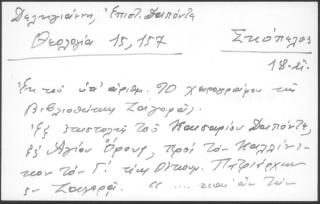 Δεληγιάννη, Ἐπιστ. Δαπόντε
Θεολογία 15, 157
Σκόπελος
18.αἰ.
Ἐκ τοῦ ὑπ' ἀριθμ. 70 χειρογράφου τῆς
Βιβλιοθήκης Ζαγορᾶς.
Ἐξ ἐπιστολῆς τοῦ Καισαρίου Δαπόντε,
ἐξ Ἁγίου Ὄρους, πρὸς τὸν Καλλίνι-
κον τὸν Γ΄. τέως Οἰκουμ. Πατριάρχην
ἐν Ζαγορᾷ. " .... καὶ ἂν τὴν